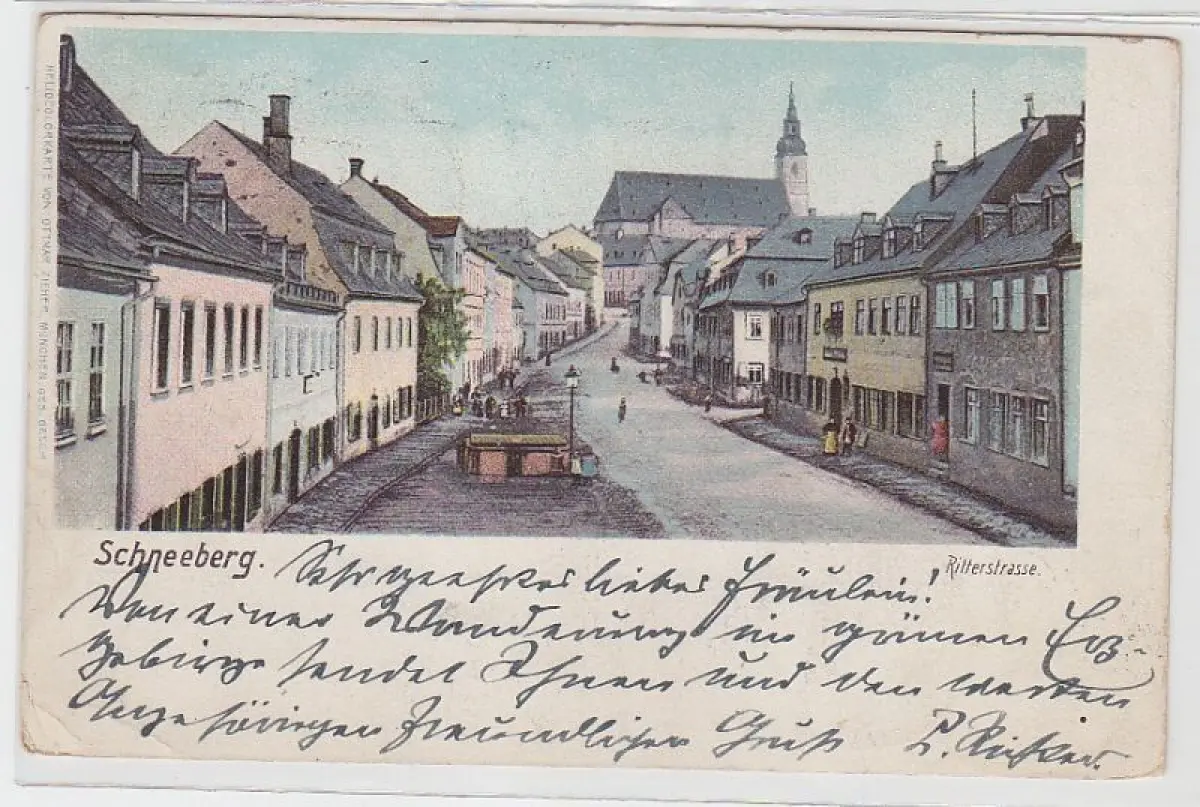 HELIOCOLORKARTE VON OTTMAR ZIEHER, MÜNCHEN. GES. GESCH.
Schneeberg.
Ritterstrasse.
Sehr geehrtes liebes Fräulein!
Von einer Wanderung im grünen Erz-
gebirge sendet Ihnen und den werten
Angehörigen freundlichen Gruß